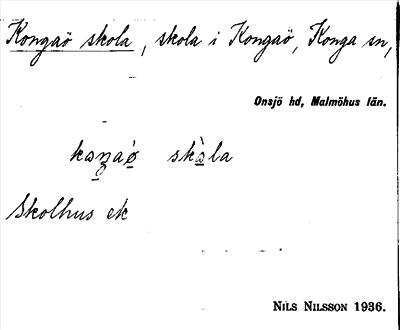 Kongaö skola, skola i Kongaö, Konga sn,
Onsjö hd, Malmöhus län.
skola
Skolhus ek
NILS NILSSON 1936.